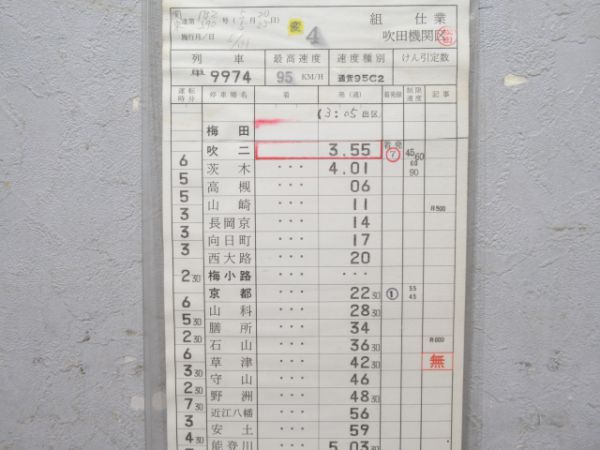 変 4 組 仕業
施行月/日 吹田機関区
列車 最高速度 速度種別 けん引定数
単9974 95 KM/H 通貨95C2
運転時分 停車場名 着 発(通) 着発線 制限速度 記事
(3:05 出区)
梅田
吹二 3.55 着発 7 45 60
6 茨木 ・・・ 4.01 60 90
5 高槻 ・・・ 06
5 山崎 ・・・ 11 R500
3 長岡京 ・・・ 14
3 向日町 ・・・ 17
3 西大路 ・・・ 20
梅小路 ・・・ ・・・
2 30 京都 ・・・ 22 30 ① 55 45
6 山科 ・・・ 28 30
5 30 膳所 ・・・ 34
2 30 石山 ・・・ 36 30 R600
6 草津 ・・・ 42 30 無
3 30 守山 ・・・ 46
2 30 野洲 ・・・ 48 30
7 30 近江八幡 ・・・ 56
3 安土 ・・・ 59
4 30 能登川 ・・・ 5.03 30